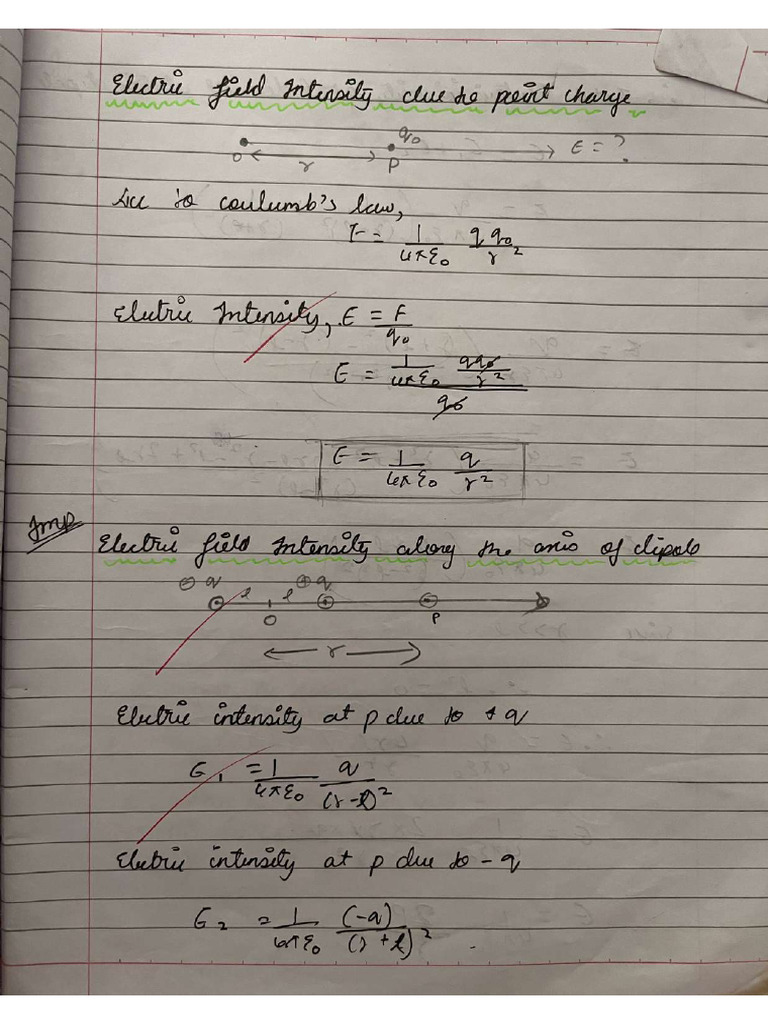 Electric field Intensity due to point charge
q₀
O r P E = ?
Acc to coulumb's law,
F = 1/4πε₀ qq₀/r²
Electric Intensity, E = F/q₀
E = 1/4πε₀ qq₀/r² / q₀
E = 1/4πε₀ q/r²
Imp
Electric field Intensity along the axis of dipole
⊖ q l l ⊕ q
O P
r
Electric intensity at p due to + q
E₁ = 1/4πε₀ q/(r-l)²
Electric intensity at p due to - q
E₂ = 1/4πε₀ (-q)/(r+l)²